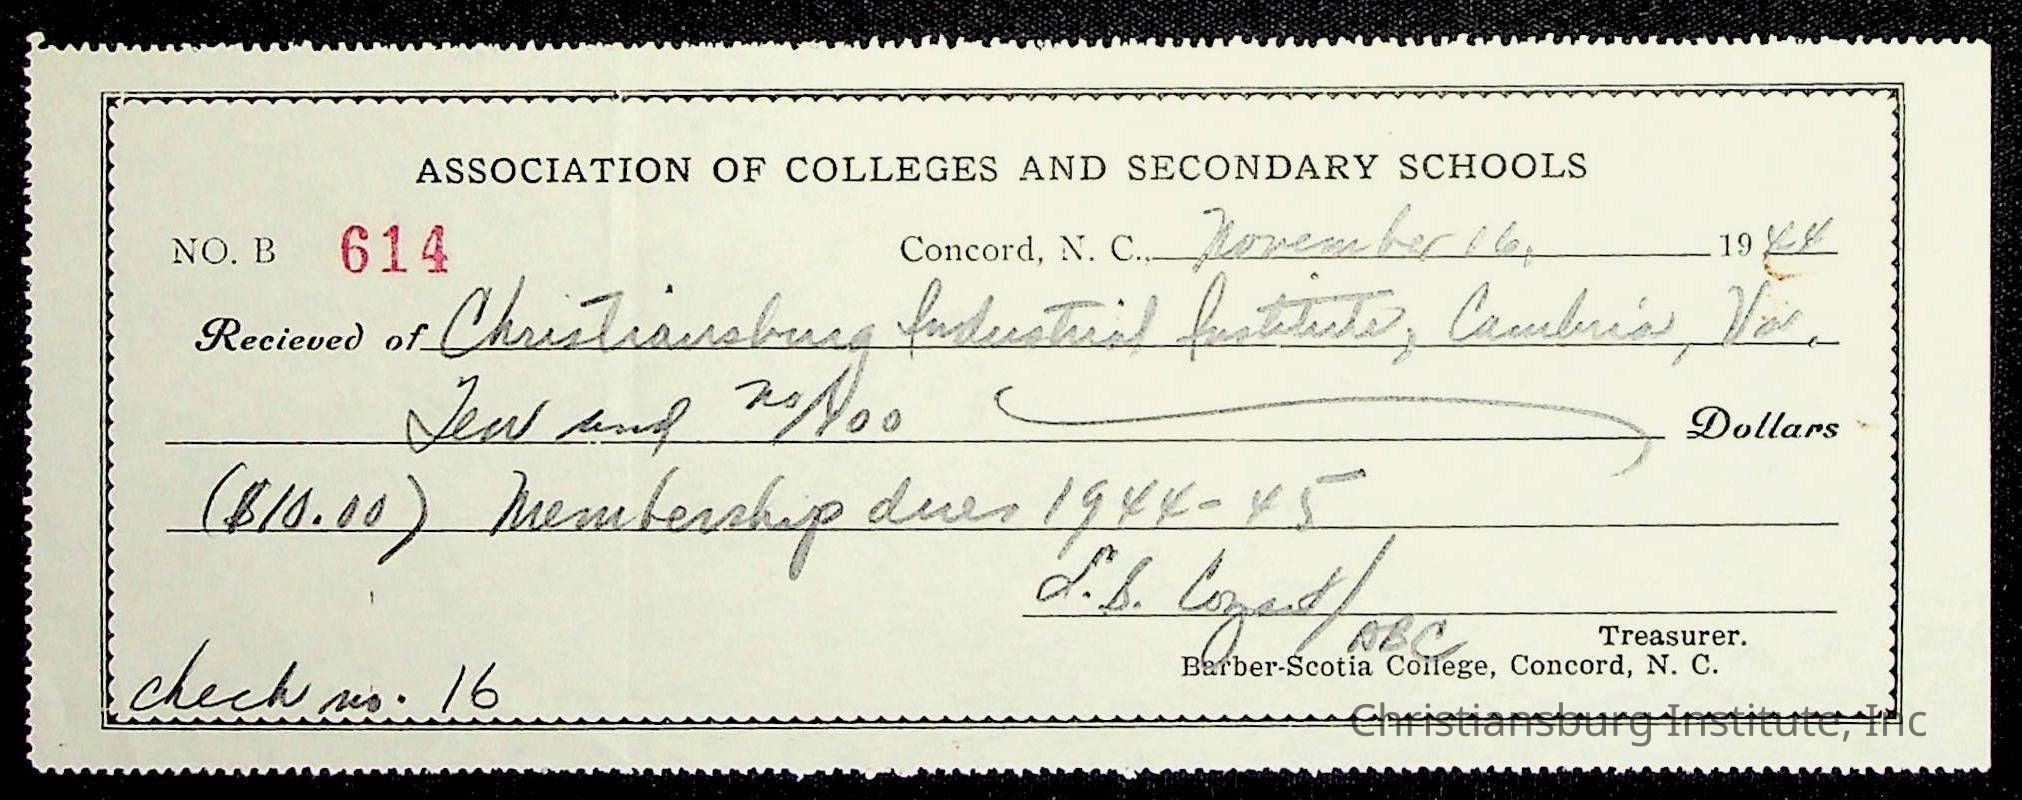 ASSOCIATION OF COLLEGES AND SECONDARY SCHOOLS
NO. B 614 Concord, N. C., November 16, 1944
Recieved of Christiansburg Industrial Institute, Cambria, Va.
Ten and no/100 Dollars
($10.00) Membership dues 1944-45
L. S. Cozart/ABC
Treasurer.
Barber-Scotia College, Concord, N. C.
check no. 16
Christiansburg Institute, Inc